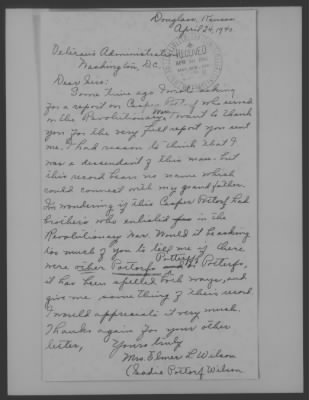 Douglass, Kansas
April 24, 1940.
Veterans Administration
Washington, D.C.
RECEIVED
Dear Sirs:
Some time ago I wrote asking
for a report on Casper who served
in the Revolutionary War. I want to thank
you for the very full report you sent
me. I had reason to think that I
was a descendent of this man - but
this record bears no name which
could connect with my grandfather.
I'm wondering if this Casper Portorf had
brothers who enlisted in the
Revolutionary War. Would it be asking
too much of you to tell me if there
were other Portorfs Potterfs,
it has been spelled both ways, and
give me some thing of their record
I would appreciate it very much.
Thanks again for your other
letter,
Yours truly
Mrs. Elmer L Wilson
(Sadie Portorf Wilson